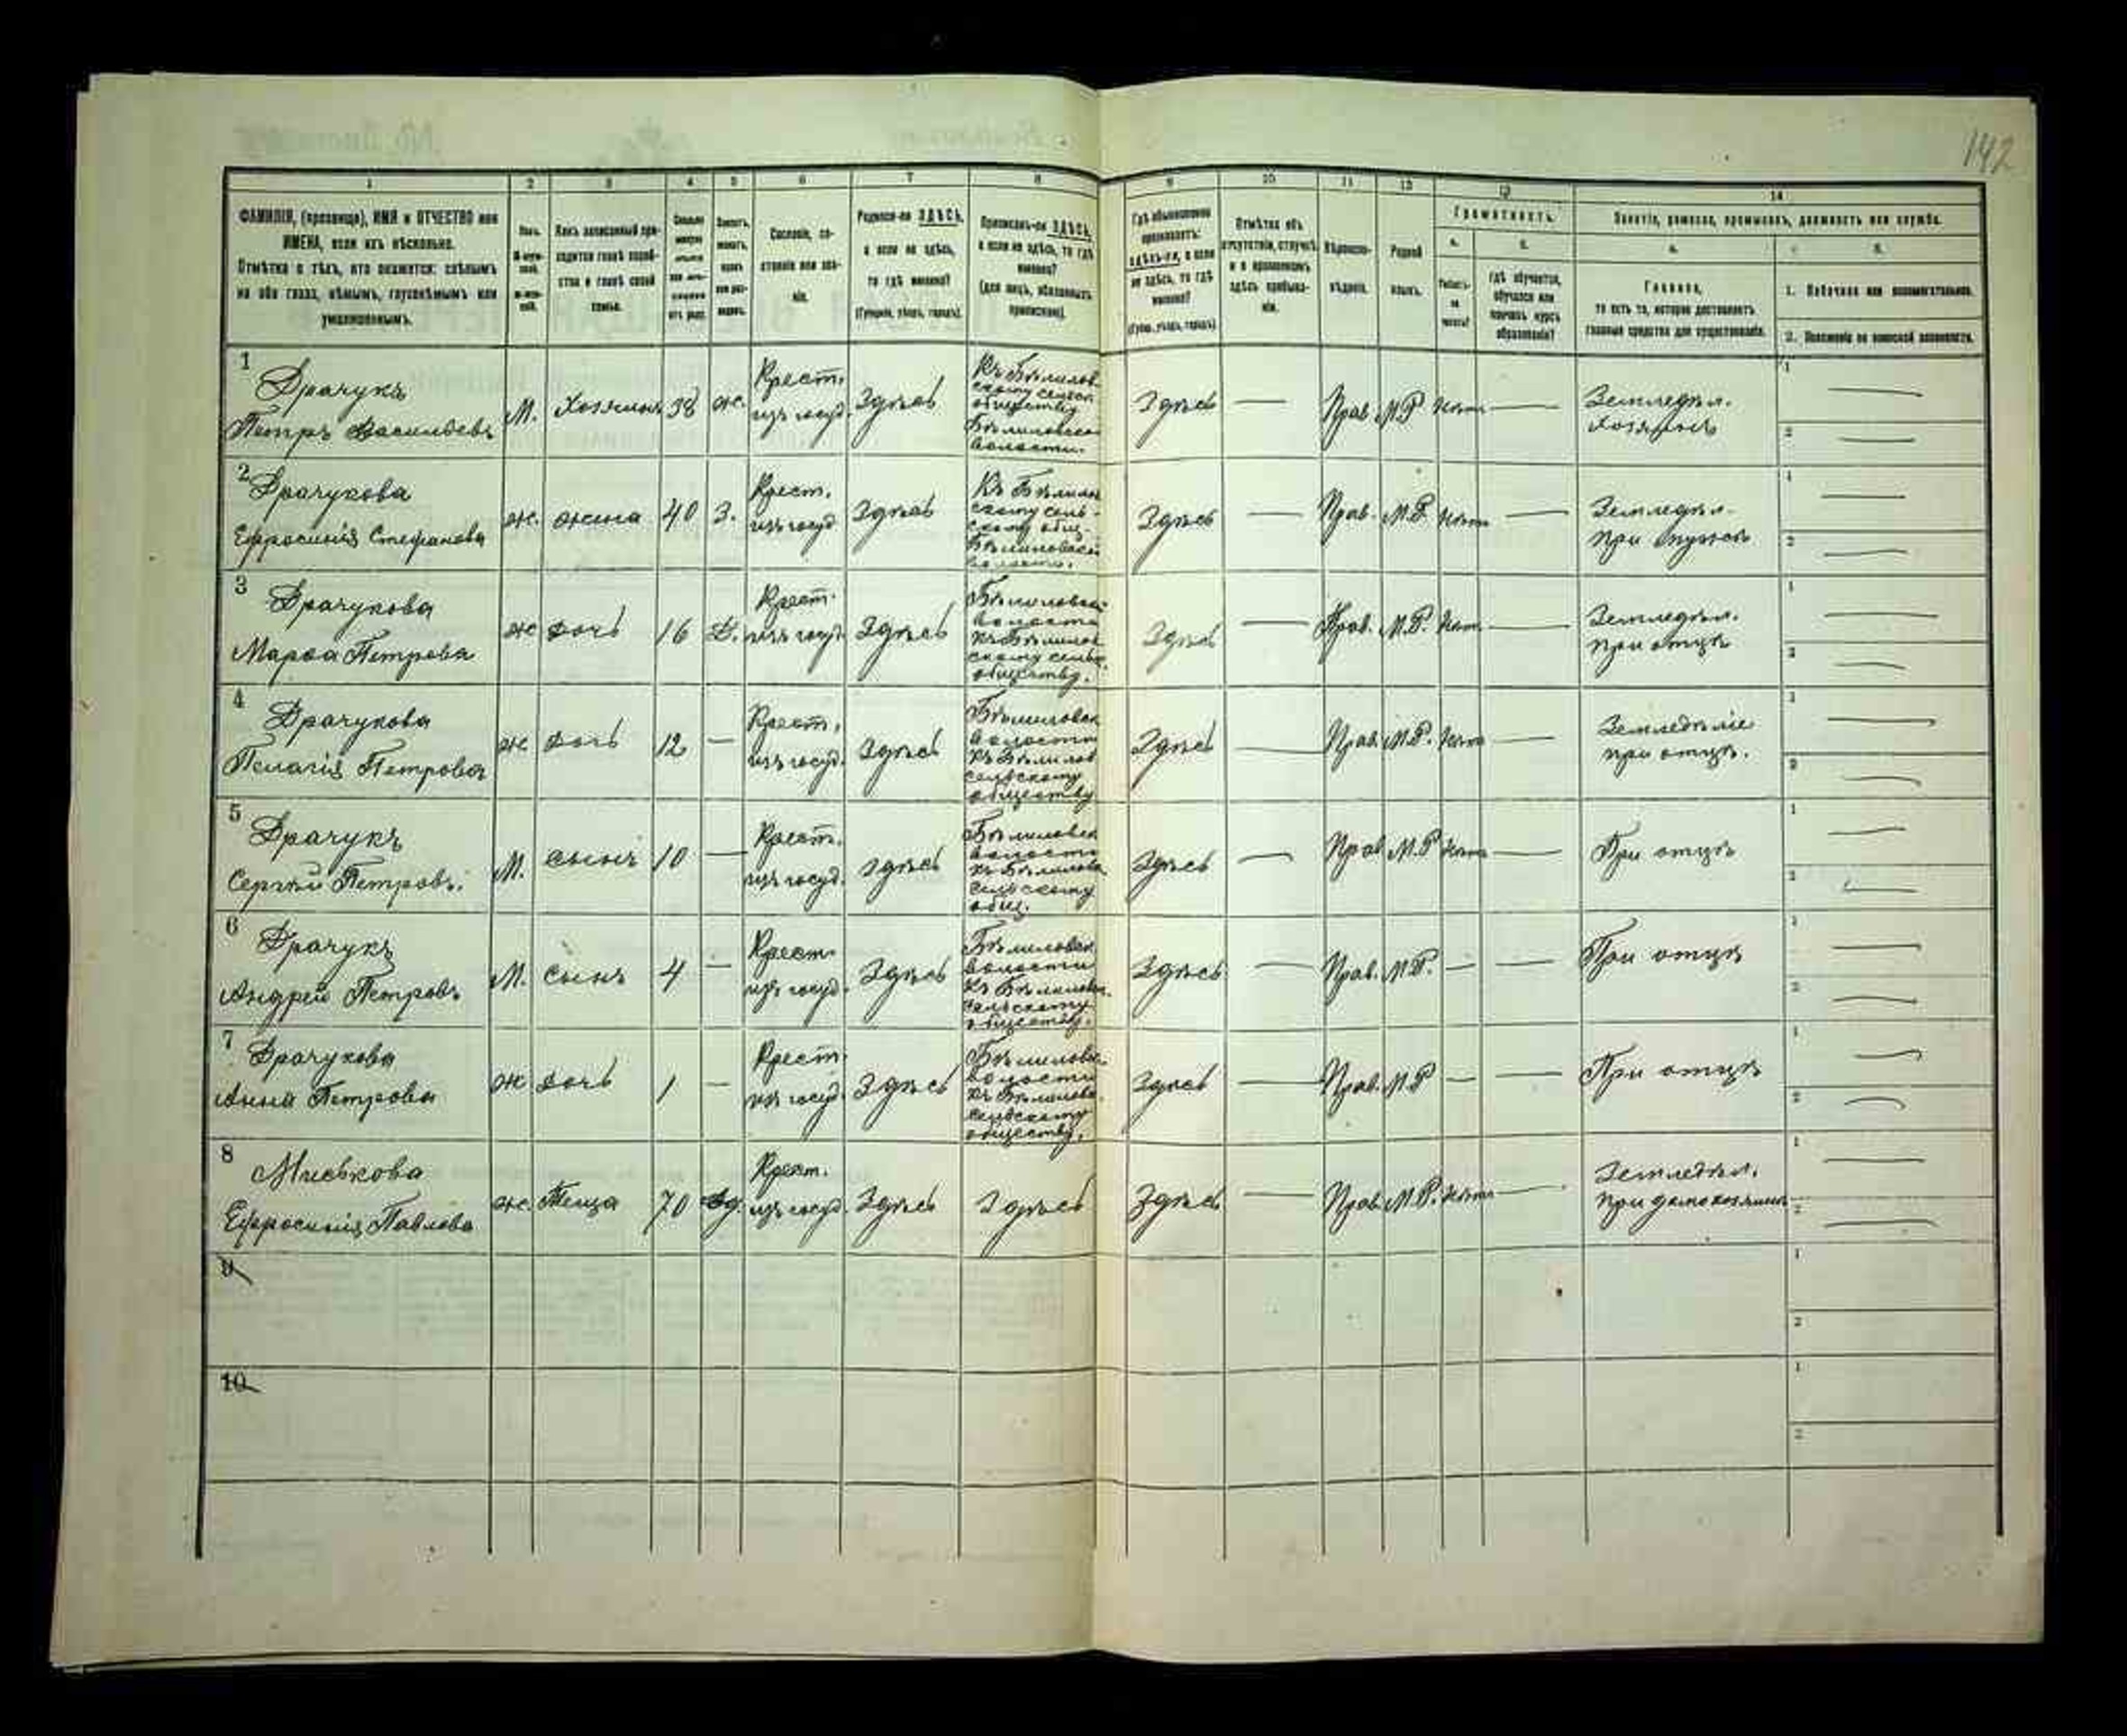 142
1 2 3 4 5 6 7 8 9 10 11 12 13 14
ФАМИЛІЯ, (прозвище), ИМЯ и ОТЧЕСТВО или
ИМЕНА, если ихъ нѣсколько.
Отмѣтка о тѣхъ, кто окажется: слѣпымъ
на оба глаза, нѣмымъ, глухонѣмымъ или
умалишеннымъ.
Полъ.
Какъ записанный при-
ходится главѣ хозяй-
ства и главѣ своей
семьи.
Сословіе, со-
стояніе или зва-
ніе.
Родился-ли ЗДѢСЬ,
а если не здѣсь,
то гдѣ именно?
(Губернія, уѣздъ, городъ).
Приписанъ-ли ЗДѢСЬ,
а если не здѣсь, то гдѣ
именно?
(для лицъ, обязанныхъ
припискою).
Гдѣ обыкновенно
проживаетъ:
здѣсь-ли, а если
не здѣсь, то гдѣ
именно?
(Губер., уѣздъ, городъ)
Отмѣтка объ
отсутствіи, отлучкѣ
и о временномъ
здѣсь пребыва-
ніи.
Вѣроиспо-
вѣданіе.
Родной
языкъ.
Грамотность.
а. б.
Умѣетъ-
ли
читать?
гдѣ обучается,
обучался или
кончилъ курсъ
образованія?
Занятіе, ремесло, промыселъ, должность или служба.
а. б.
Главное,
то есть то, которое доставляетъ
главныя средства для существованія.
1. Побочное или вспомогательное.
2. Положеніе по воинской повинности.
1 Драчукъ
Петръ Васильевъ
М. Хозяинъ 38 ж. Крест. изъ госуд. Здѣсь
Къ Бѣлилов-
скому сельск
обществу
Бѣлиловской
волости.
Здѣсь — Прав. М.Р. Нѣтъ — Земледѣл.
хозяинъ
1 —
2 —
2 Драчукова
Ефросинія Стефанова
ж. жена 40 З. Крест. изъ госуд. Здѣсь
Къ Бѣлилов
скому сель-
скому общ.
Бѣлиловской
волости.
Здѣсь — Прав. М.Р. Нѣтъ — Земледѣл.
при мужѣ
1 —
2 —
3 Драчукова
Марѳа Петрова
ж дочь 16 Д. Крест. изъ госуд. Здѣсь
Бѣлиловской
волости
къ Бѣлилов
скому сельск.
обществу.
Здѣсь — Прав. М.Р. Нѣтъ — Земледѣл.
при отцѣ
1 —
2 —
4 Драчукова
Пелагія Петрова
ж дочь 12 — Крест. изъ госуд. Здѣсь
Бѣлиловск
волости
къ Бѣлилов
сельскому
обществу
Здѣсь — Прав. М.Р. Нѣтъ — Земледѣліе
при отцѣ.
1 —
2 —
5 Драчукъ
Сергѣй Петровъ.
М. сынъ 10 — Крест. изъ госуд. здѣсь
Бѣлиловск
волости
къ Бѣлилов
сельскому
общ.
Здѣсь — Прав М.Р Нѣтъ — При отцѣ
1 —
2 —
6 Драчукъ
Андрей Петровъ
М. сынъ 4 — Крест. изъ госуд. Здѣсь
Бѣлиловск
волости
къ Бѣлиловск.
сельскому
обществу.
Здѣсь — Прав. М.Р. — — При отцѣ
1 —
2 —
7 Драчукова
Анна Петрова
ж дочь 1 — Крест. изъ госуд. Здѣсь
Бѣлиловск
волости
къ Бѣлилов.
сельскому
обществу.
Здѣсь — Прав. М.Р — — При отцѣ
1 —
2 —
8 Миськова
Ефросинія Павлова
ж. Теща 70 вд. Крест. изъ госуд. Здѣсь Здѣсь Здѣсь — Прав. М.Р. Нѣтъ — Земледѣл.
при домохозяинѣ
1 —
2 —
9
1
2
10
1
2